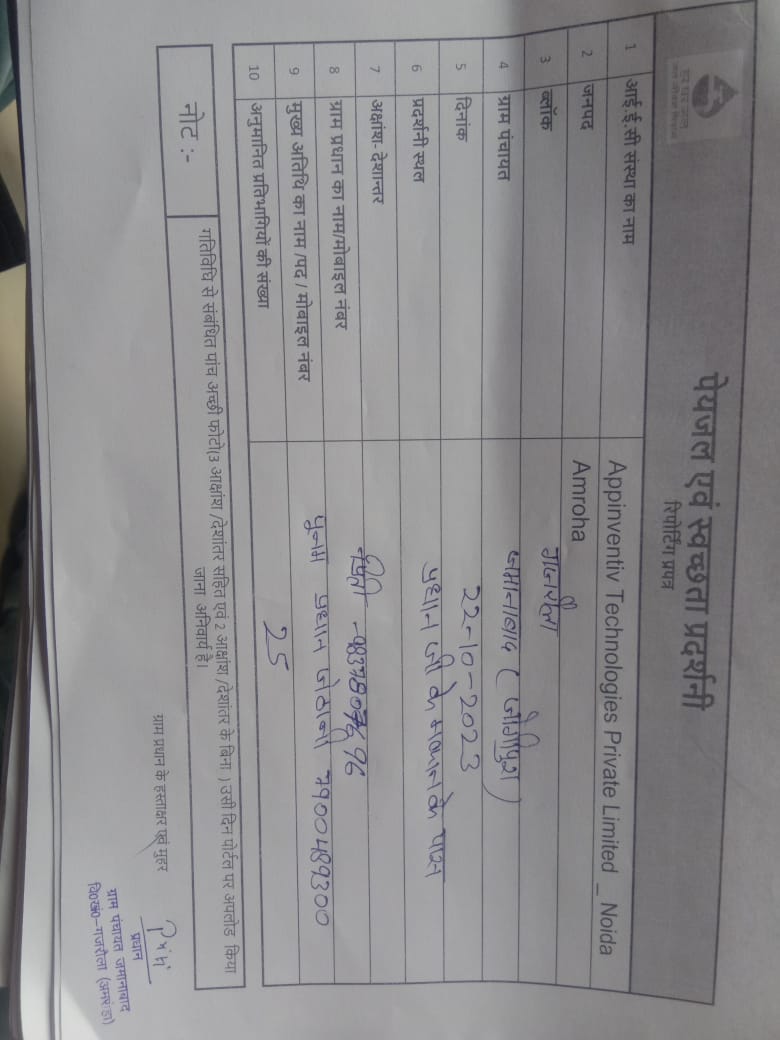 पेयजल एवं स्वच्छता प्रदर्शनी
रिपोर्टिंग प्रपत्र
1 आई.ई.सी संस्था का नाम Appinventiv Technologies Private Limited _ Noida
2 जनपद Amroha
3 ब्लॉक गजरौला
4 ग्राम पंचायत जमानाबाद ( जोगीपुरा )
5 दिनांक 22-10-2023
6 प्रदर्शनी स्थल प्रधान जी के मकान के पास
7 अक्षांश- देशान्तर
8 ग्राम प्रधान का नाम/मोबाइल नंबर
9 मुख्य अतिथि का नाम /पद / मोबाइल नंबर पुनम प्रधान 7900489300
10 अनुमानित प्रतिभागियों की संख्या 25
नोट :-
गतिविधि से संबंधित पांच अच्छी फोटो(3 आक्षांश /देशांतर सहित एवं 2 आक्षांश /देशांतर के बिना ) उसी दिन पोर्टल पर अपलोड किया
जाना अनिवार्य है।
ग्राम प्रधान के हस्ताक्षर एवं मुहर
प्रधान
ग्राम पंचायत जमानाबाद
वि०खं०-गजरौला (अमरोहा)